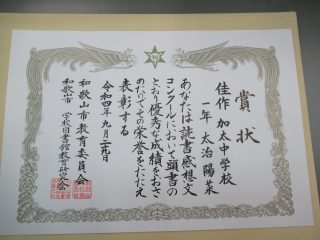 賞状
佳作 加太中学校
一年 太治陽菜
あなたは読書感想文
コンクールにおいて頭書の
とおり優秀な成績をおさ
めたのでその栄誉をたたえ
表彰する
令和四年九月二十九日
和歌山市教育委員会
和歌山市 学校図書館教育研究会